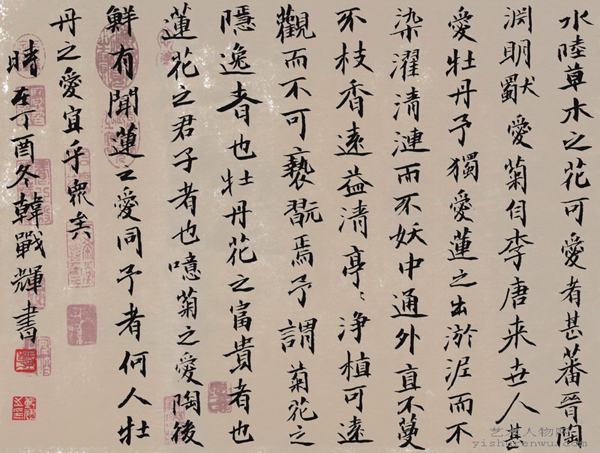 水陸草木之花可愛者甚蕃晉陶
渊明獨愛菊自李唐来世人甚
愛牡丹予獨愛蓮之出淤泥而不
染濯清漣而不妖中通外直不蔓
不枝香遠益清亭亭净植可遠
觀而不可褻翫焉予謂菊花之
隱逸者也牡丹花之富貴者也
蓮花之君子者也噫菊之愛陶後
鮮有聞蓮之愛同予者何人牡
丹之愛宜乎衆矣
時在丁酉冬韓戰輝書